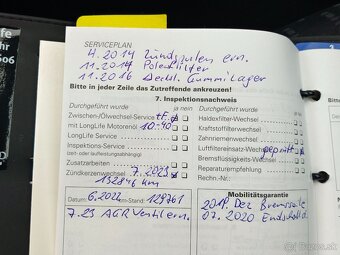 SERVICEPLAN
4.2014 Zündspulen ern.
11.2014 Polenfilter
11.2016 Gummilager
Bitte in jeder Zeile das Zutreffende ankreuzen!
7. Inspektionsnachweis
Durchgeführt wurde ja nein
Zwischen-/Ölwechsel-Service
mit LongLife Motorenöl 10-40
LongLife Service
Inspektions-Service
(zeit- oder laufleistungsabhängig)
Zusatzarbeiten
Zündkerzenwechsel 7.2023
132846 km
Datum: 6.2022 km-Stand: 129761
7.23 AGR Ventil ern.
Durchgeführt wurde ja nein
Haldexfilter-Wechsel
Kraftstofffilterwechsel
Zahnriemenwechsel
Luftfiltereinsatz-Wechsel geprüft
Bremsflüssigkeits-Wechsel
Reparaturempfehlung
Rechn.-Nr.:
Mobilitätsgarantie
2019
07.2020